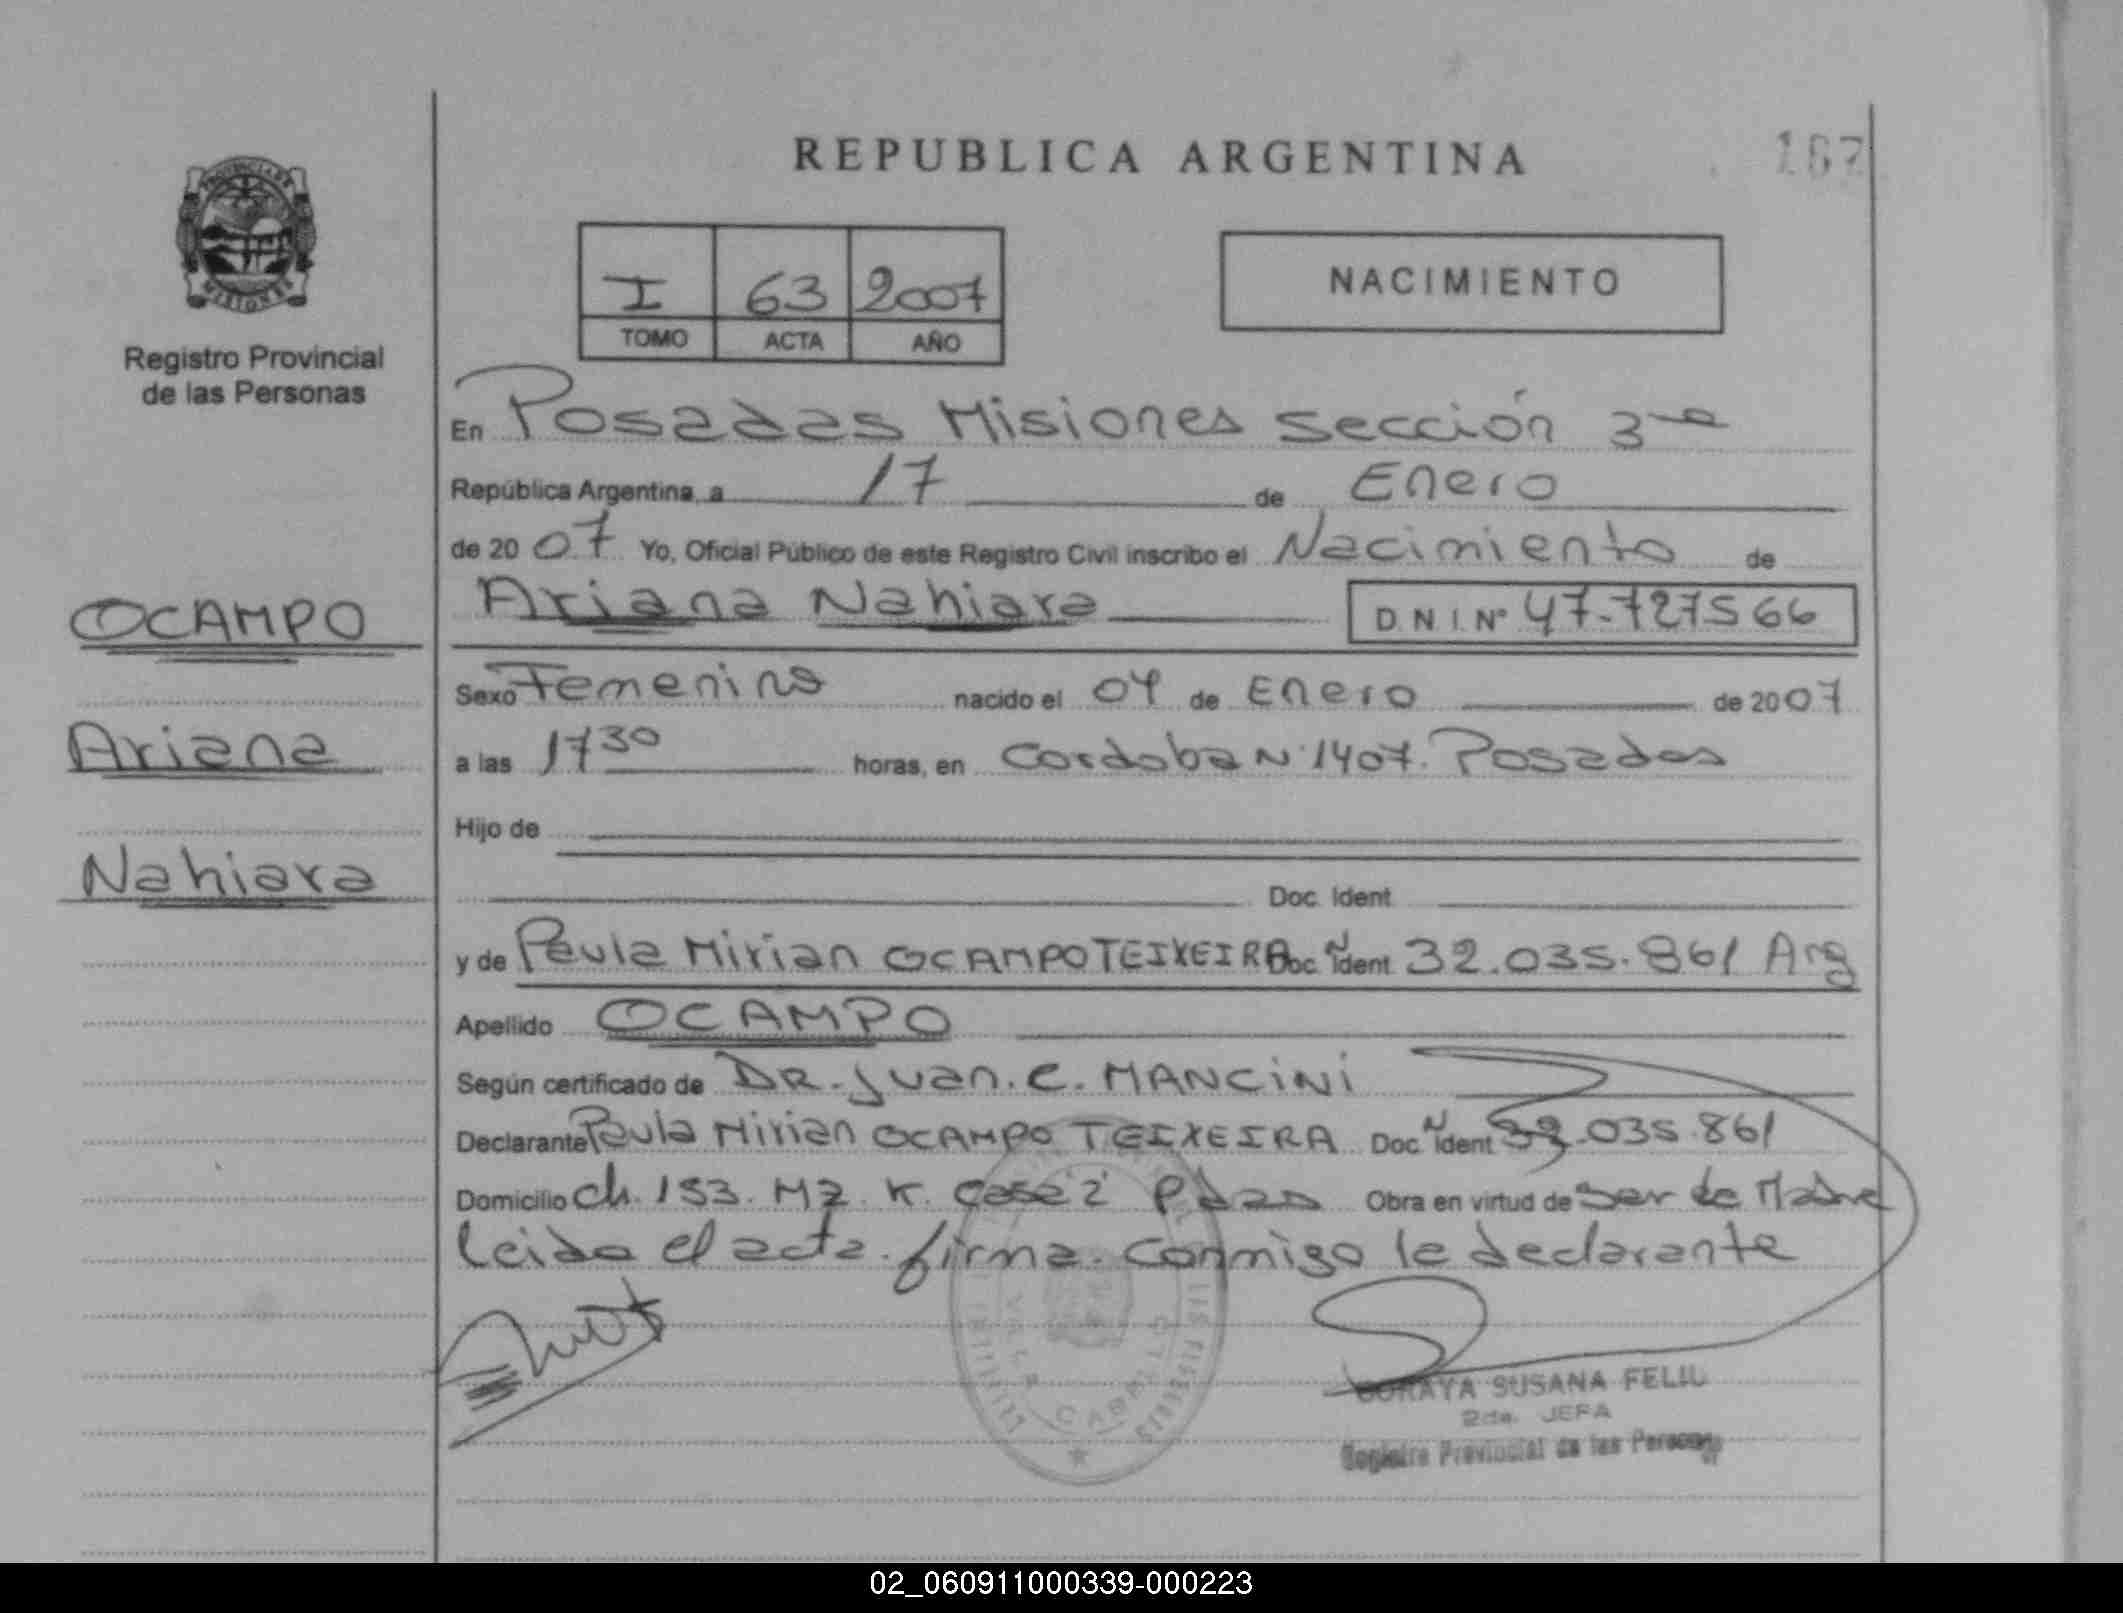 REPUBLICA ARGENTINA
167
PROVINCIA DE
MISIONES
Registro Provincial
de las Personas
I 63 2007
TOMO ACTA AÑO
NACIMIENTO
En Posadas Misiones Sección 3ra
República Argentina, a 17 de Enero
de 2007 Yo, Oficial Público de este Registro Civil inscribo el Nacimiento de
Ariana Nahiara D.N.I.Nº 47.727566
OCAMPO
Ariana
Nahiara
Sexo Femenino nacido el 04 de Enero de 2007
a las 17 30 horas, en Cordoba Nº 1407. Posadas
Hijo de
Doc. Ident
y de Paula Mirian OCAMPO TEIXEIRA Doc. Ident N 32.035.861 Arg
Apellido OCAMPO
Según certificado de DR. Juan. C. MANCiNi
Declarante Paula Mirian OCAMPO TEIXEIRA Doc. Ident N 32.035.861
Domicilio ch. 153. Mz. K. casa 2 Pdas Obra en virtud de ser la Madre
Leida el acta. firma. conmigo la declarante
CABRED
SORAYA SUSANA FELIU
2da. JEFA
Registro Provincial de las Personas
02_060911000339-000223